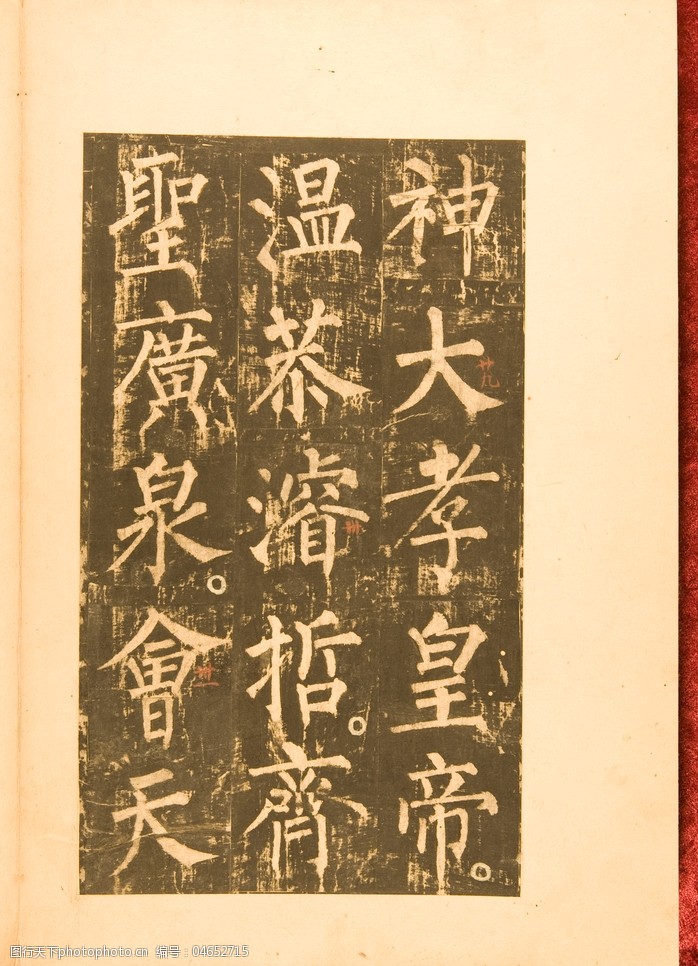 神大孝皇帝
温恭濬哲齊
聖廣泉會天
卅九
卌
卌一
图行天下photophoto.cn 编号：04652715